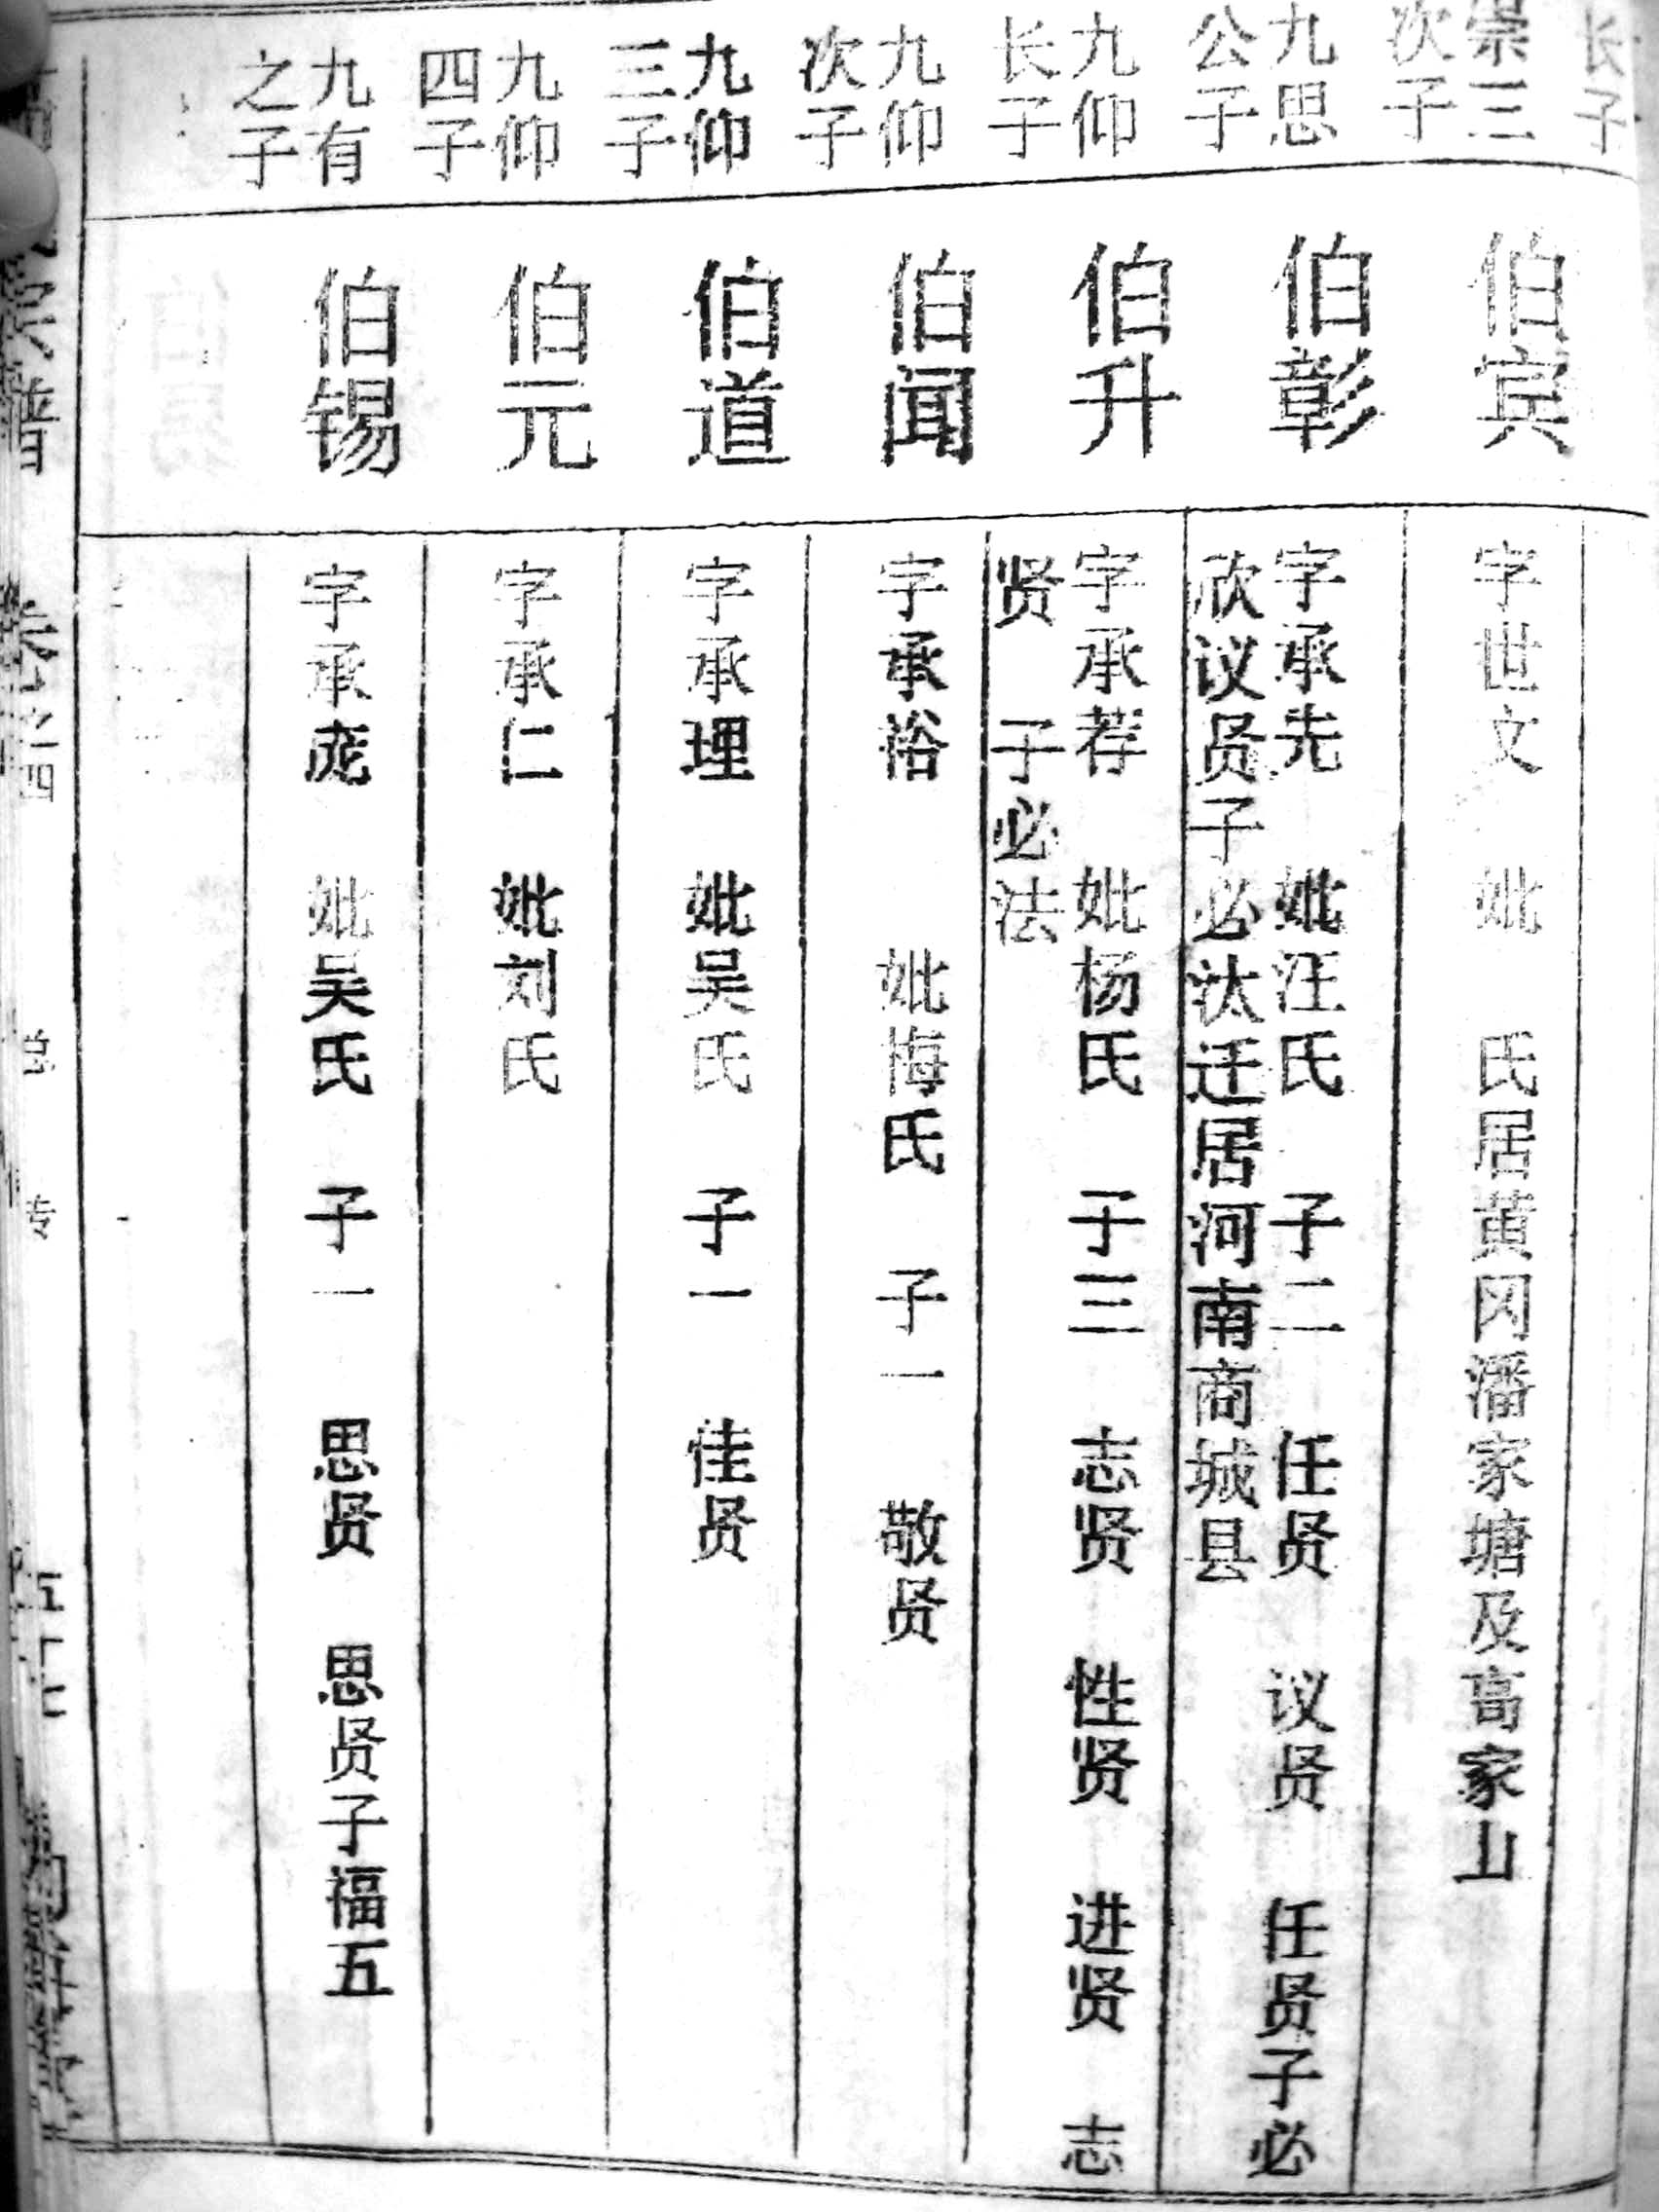 长子
崇三
次子
伯宾
字世文 妣 氏居黄冈潘家塘及高家山
九思
公子
伯彰
字承先 妣汪氏 子二 任贤 议贤 任贤子必
欣议贤子必汰迁居河南商城县
九仰
长子
伯升
字承荐 妣杨氏 子三 志贤 性贤 进贤 志
贤 子必法
九仰
次子
伯闻
字承裕 妣梅氏 子一 敬贤
九仰
三子
伯道
字承理 妣吴氏 子一 佳贤
九仰
四子
伯元
字承仁 妣刘氏
九有
之子
伯锡
字承庞 妣吴氏 子一 思贤 思贤子福五
宗谱 卷之四